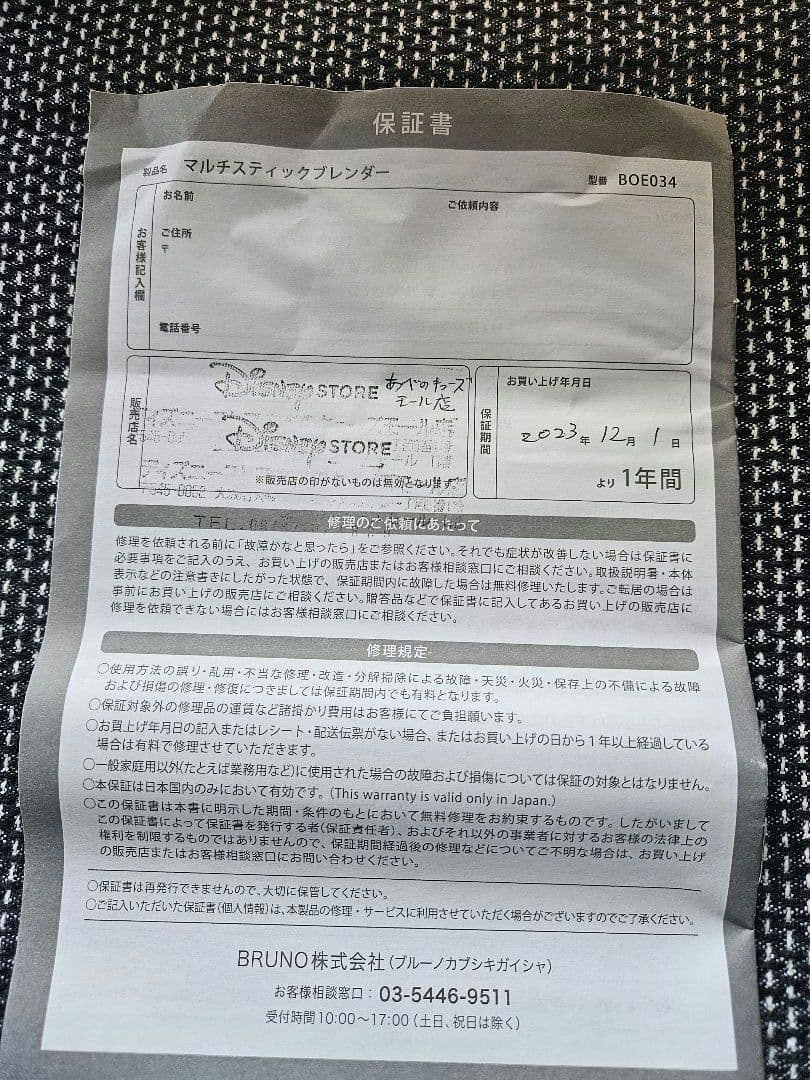 保証書
製品名 マルチスティックブレンダー 型番 BOE034
お客様記入欄
お名前
ご依頼内容
ご住所
〒
電話番号
販売店名
Disney STORE あべのキューズ
モール店
Disney STORE
※販売店の印がないものは無効となります。
TEL.
保証期間
お買い上げ年月日
2023年 12月 1日
より 1年間
修理のご依頼にあたって
修理を依頼される前に「故障かなと思ったら」をご参照ください。それでも症状が改善しない場合は保証書に
必要事項をご記入のうえ、お買い上げの販売店またはお客様相談窓口にご相談ください。取扱説明書・本体
表示などの注意書きにしたがった状態で、保証期間内に故障した場合は無料修理いたします。ご転居の場合は
事前にお買い上げの販売店にご相談ください。贈答品などで保証書に記入してあるお買い上げの販売店に
修理を依頼できない場合にはお客様相談窓口にご相談ください。
修理規定
○使用方法の誤り・乱用・不当な修理・改造・分解掃除による故障・天災・火災・保存上の不備による故障
および損傷の修理・修復につきましては保証期間内でも有料となります。
○保証対象外の修理品の運賃など諸掛かり費用はお客様にてご負担願います。
○お買上げ年月日の記入またはレシート・配送伝票がない場合、またはお買い上げの日から1年以上経過している
場合は有料で修理させていただきます。
○一般家庭用以外(たとえば業務用など)に使用された場合の故障および損傷については保証の対象とはなりません。
○本保証は日本国内のみにおいて有効です。(This warranty is valid only in Japan.)
○この保証書は本書に明示した期間・条件のもとにおいて無料修理をお約束するものです。したがいまして
この保証書によって保証書を発行する者(保証責任者)、およびそれ以外の事業者に対するお客様の法律上の
権利を制限するものではありませんので、保証期間経過後の修理などについてご不明な場合は、お買い上げ
の販売店またはお客様相談窓口にお問い合わせください。
○保証書は再発行できませんので、大切に保管してください。
○ご記入いただいた保証書(個人情報)は、本製品の修理・サービスに利用させていただく場合がございますのでご了承ください。
BRUNO株式会社(ブルーノカブシキガイシャ)
お客様相談窓口：03-5446-9511
受付時間10:00〜17:00(土日、祝日は除く)